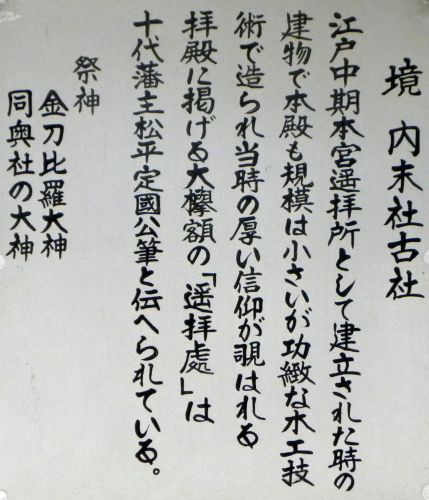 境内末社古社
江戸中期本宮遥拝所として建立された時の
建物で本殿も規模は小さいが功緻な木工技
術で造られ当時の厚い信仰が覗はれる
拝殿に掲げる大欅額の「遥拝處」は
十代藩主松平定國公筆と伝へられている。
祭神
金刀比羅大神
同奥社の大神